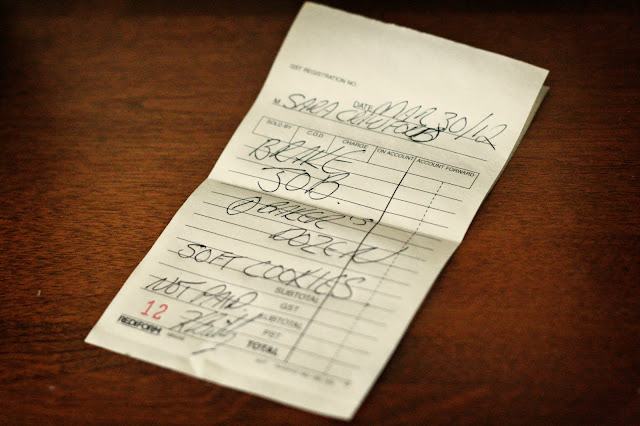 GST REGISTRATION NO.
DATE MAR 30/12
M. SARA CRAWFORD
SOLD BY C.O.D. CHARGE ON ACCOUNT ACCOUNT FORWARD
BRAKE
JOB.
① BAKER'S
DOZEN
SOFT COOKIES
SUBTOTAL
NOT PAID GST
SUBTOTAL
12 PST
REDIFORM TOTAL